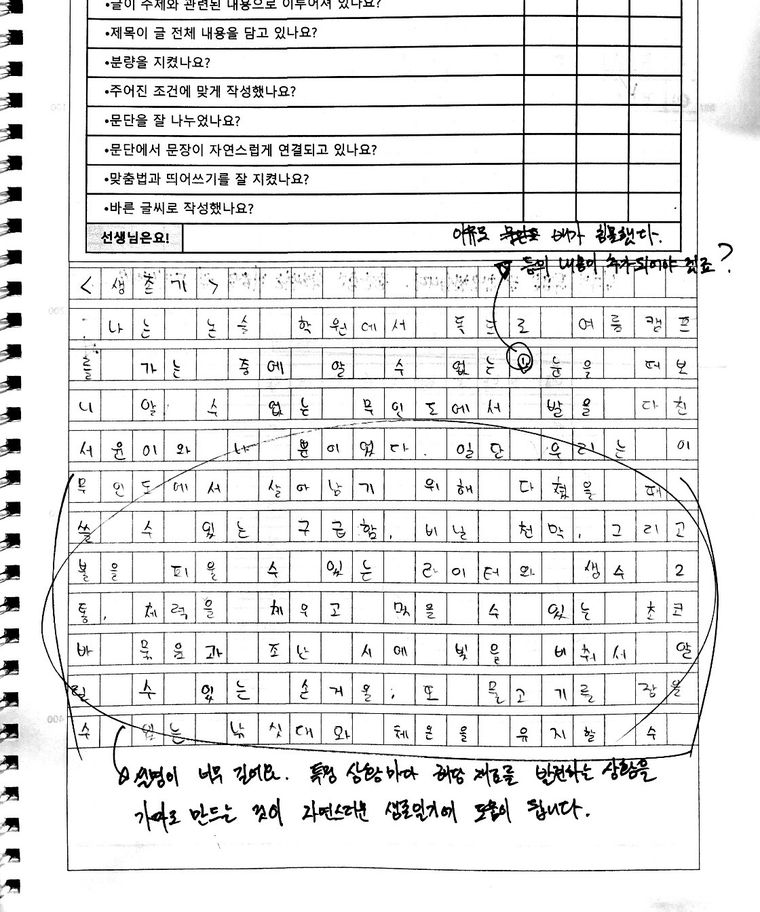 •글이 주제와 관련된 내용으로 이루어져 있나요?
•제목이 글 전체 내용을 담고 있나요?
•분량을 지켰나요?
•주어진 조건에 맞게 작성했나요?
•문단을 잘 나누었나요?
•문단에서 문장이 자연스럽게 연결되고 있나요?
•맞춤법과 띄어쓰기를 잘 지켰나요?
•바른 글씨로 작성했나요?
선생님은요!
이유로 배가 침몰했다.
등의 내용이 추가되어야 겠죠?
<생존기>
나는 논술 학원에서 여름캠프
를 가는 중에 알 수 없는 ① 눈을 떠보
니 알 수 없는 무인도에서 발을 다친
서윤이와 나 뿐이었다. 일단 우리는 이
무인도에서 살아남기 위해 다쳤을 때
쓸 수 있는 구급함, 비닐 천막, 그리고
불을 피울 수 있는 라이터와 생수 2
통, 체력을 채우고 먹을 수 있는 초코
바 묶음과 조난 시에 빛을 비춰서 알
릴 수 있는 손거울, 또 물고기를 잡을
수 있는 낚싯대와 체온을 유지할 수
설명이 너무 길어요. 특정 상황마다 해당 재료를 발견하는 상황을
만드는 것이 자연스러운 도움이 됩니다.